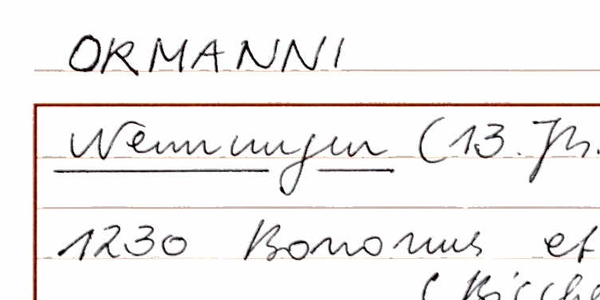 ORMANNI
Nennungen (13. Jh.
1230 Bonomus et
(Bische